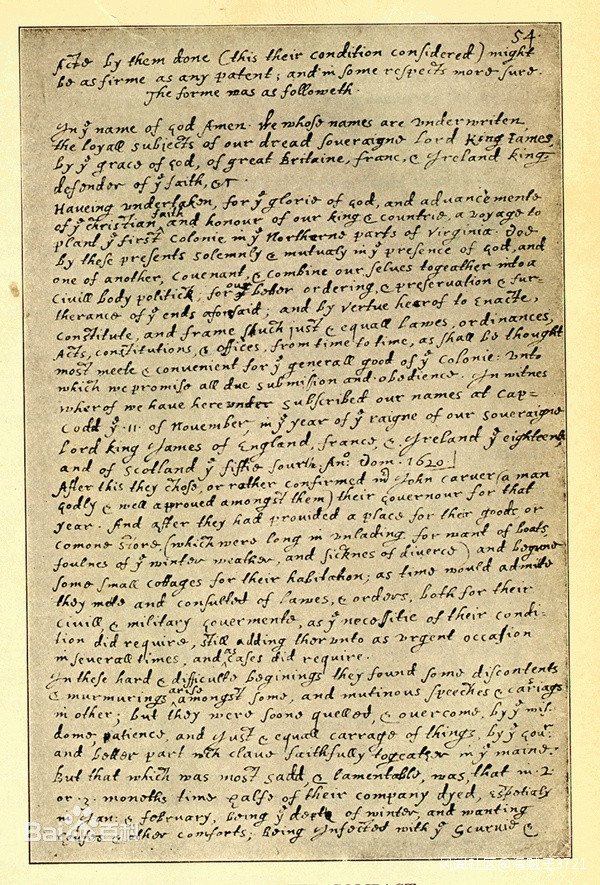 54.
Acte by them done (this their condition considered) might
be as firme as any patent; and in some respects more sure.
The forme was as followeth.
In yͤ name of god Amen. We whose names are underwriten,
the loyall subjects of our dread soveraigne Lord King James,
by yͤ grace of god, of great Britaine, franc, & Ireland king,
defender of yͤ faith, &c
Haveing undertaken, for yͤ glorie of god, and advancemente
of yͤ christian faith and honour of our king & countrie, a voyage to
plant yͤ first colonie in yͤ Northerne parts of Virginia. Doe
by these presents solemnly & mutualy in yͤ presence of god, and
one of another, covenant, & combine our selves togeather into a
civill body politick; for our better ordering, & preservation & fur=
therance of yͤ ends aforesaid; and by vertue hearof to enacte,
constitute, and frame shuch just & equall lawes, ordinances,
Acts, constitutions, & offices, from time to time, as shall be thought
most meete & convenient for yͤ generall good of yͤ colonie: unto
which we promise all due submission and obedience. In witnes
wherof we have hereunder subscribed our names at Cap=
Codd yͤ .11. of November, in yͤ year of yͤ raigne of our soveraigne
Lord king James of England, france, & Ireland yͤ eighteenth,
and of Scotland yͤ fiftie fourth. An°: Dom. 1620.
After this they chose, or rather confirmed mr John carver (a man
godly & well approved amongst them) their governour for that
year. And after they had provided a place for their goods, or
comone store, (which were long in unlading, for want of boats,
foulnes of yͤ winter weather, and sicknes of diverce) and begune
some small cottages for their habitation; as time would admitte
they mete and consulted of lawes, & orders, both for their
civill, & military govermente, as yͤ necessitie of their condi=
tion did require, still adding therunto as urgent occasion
in severall times, and as cases did require.
In these hard & difficulte beginings they found some discontents
& murmurings arise amongst some, and mutinous speeches & cariags
in other; but they were soone quelled, & overcome, by yͤ wis=
dome, patience, and just & equall carrage of things, by yͤ gour
and better part wch clave faithfully togeather in yͤ maine.
But that which was most sadd, & lamentable, was, that in .2.
or .3. moneths time halfe of their company dyed, espetialy
in Jan: & february, being yͤ depth of winter, and wanting
houses & other comforts; being Infected with yͤ Scurvie &
Baidu百科